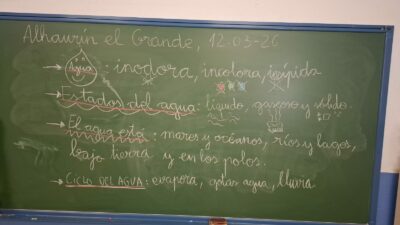 Alhaurín el Grande, 12-03-26
→ Agua: inodora, incolora, insípida
→ Estados del agua: líquido, gaseoso y sólido.
→ El agua está: mares y océanos, ríos y lagos,
bajo tierra y en los polos.
→ CICLO DEL AGUA: evapora, gotas agua, lluvia